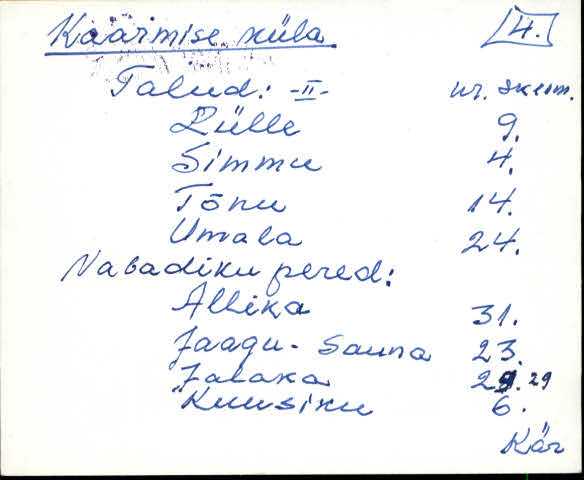 Käärmise küla 4.
Talud: -II- nr. skeem.
Rülle 9.
Simmu 4.
Tõnu 14.
Umala 24.
Vabadiku pered:
Allika 31.
Jaagu-Sauna 23.
Jalaka 29. 29
Kuusiku 6.
Kär